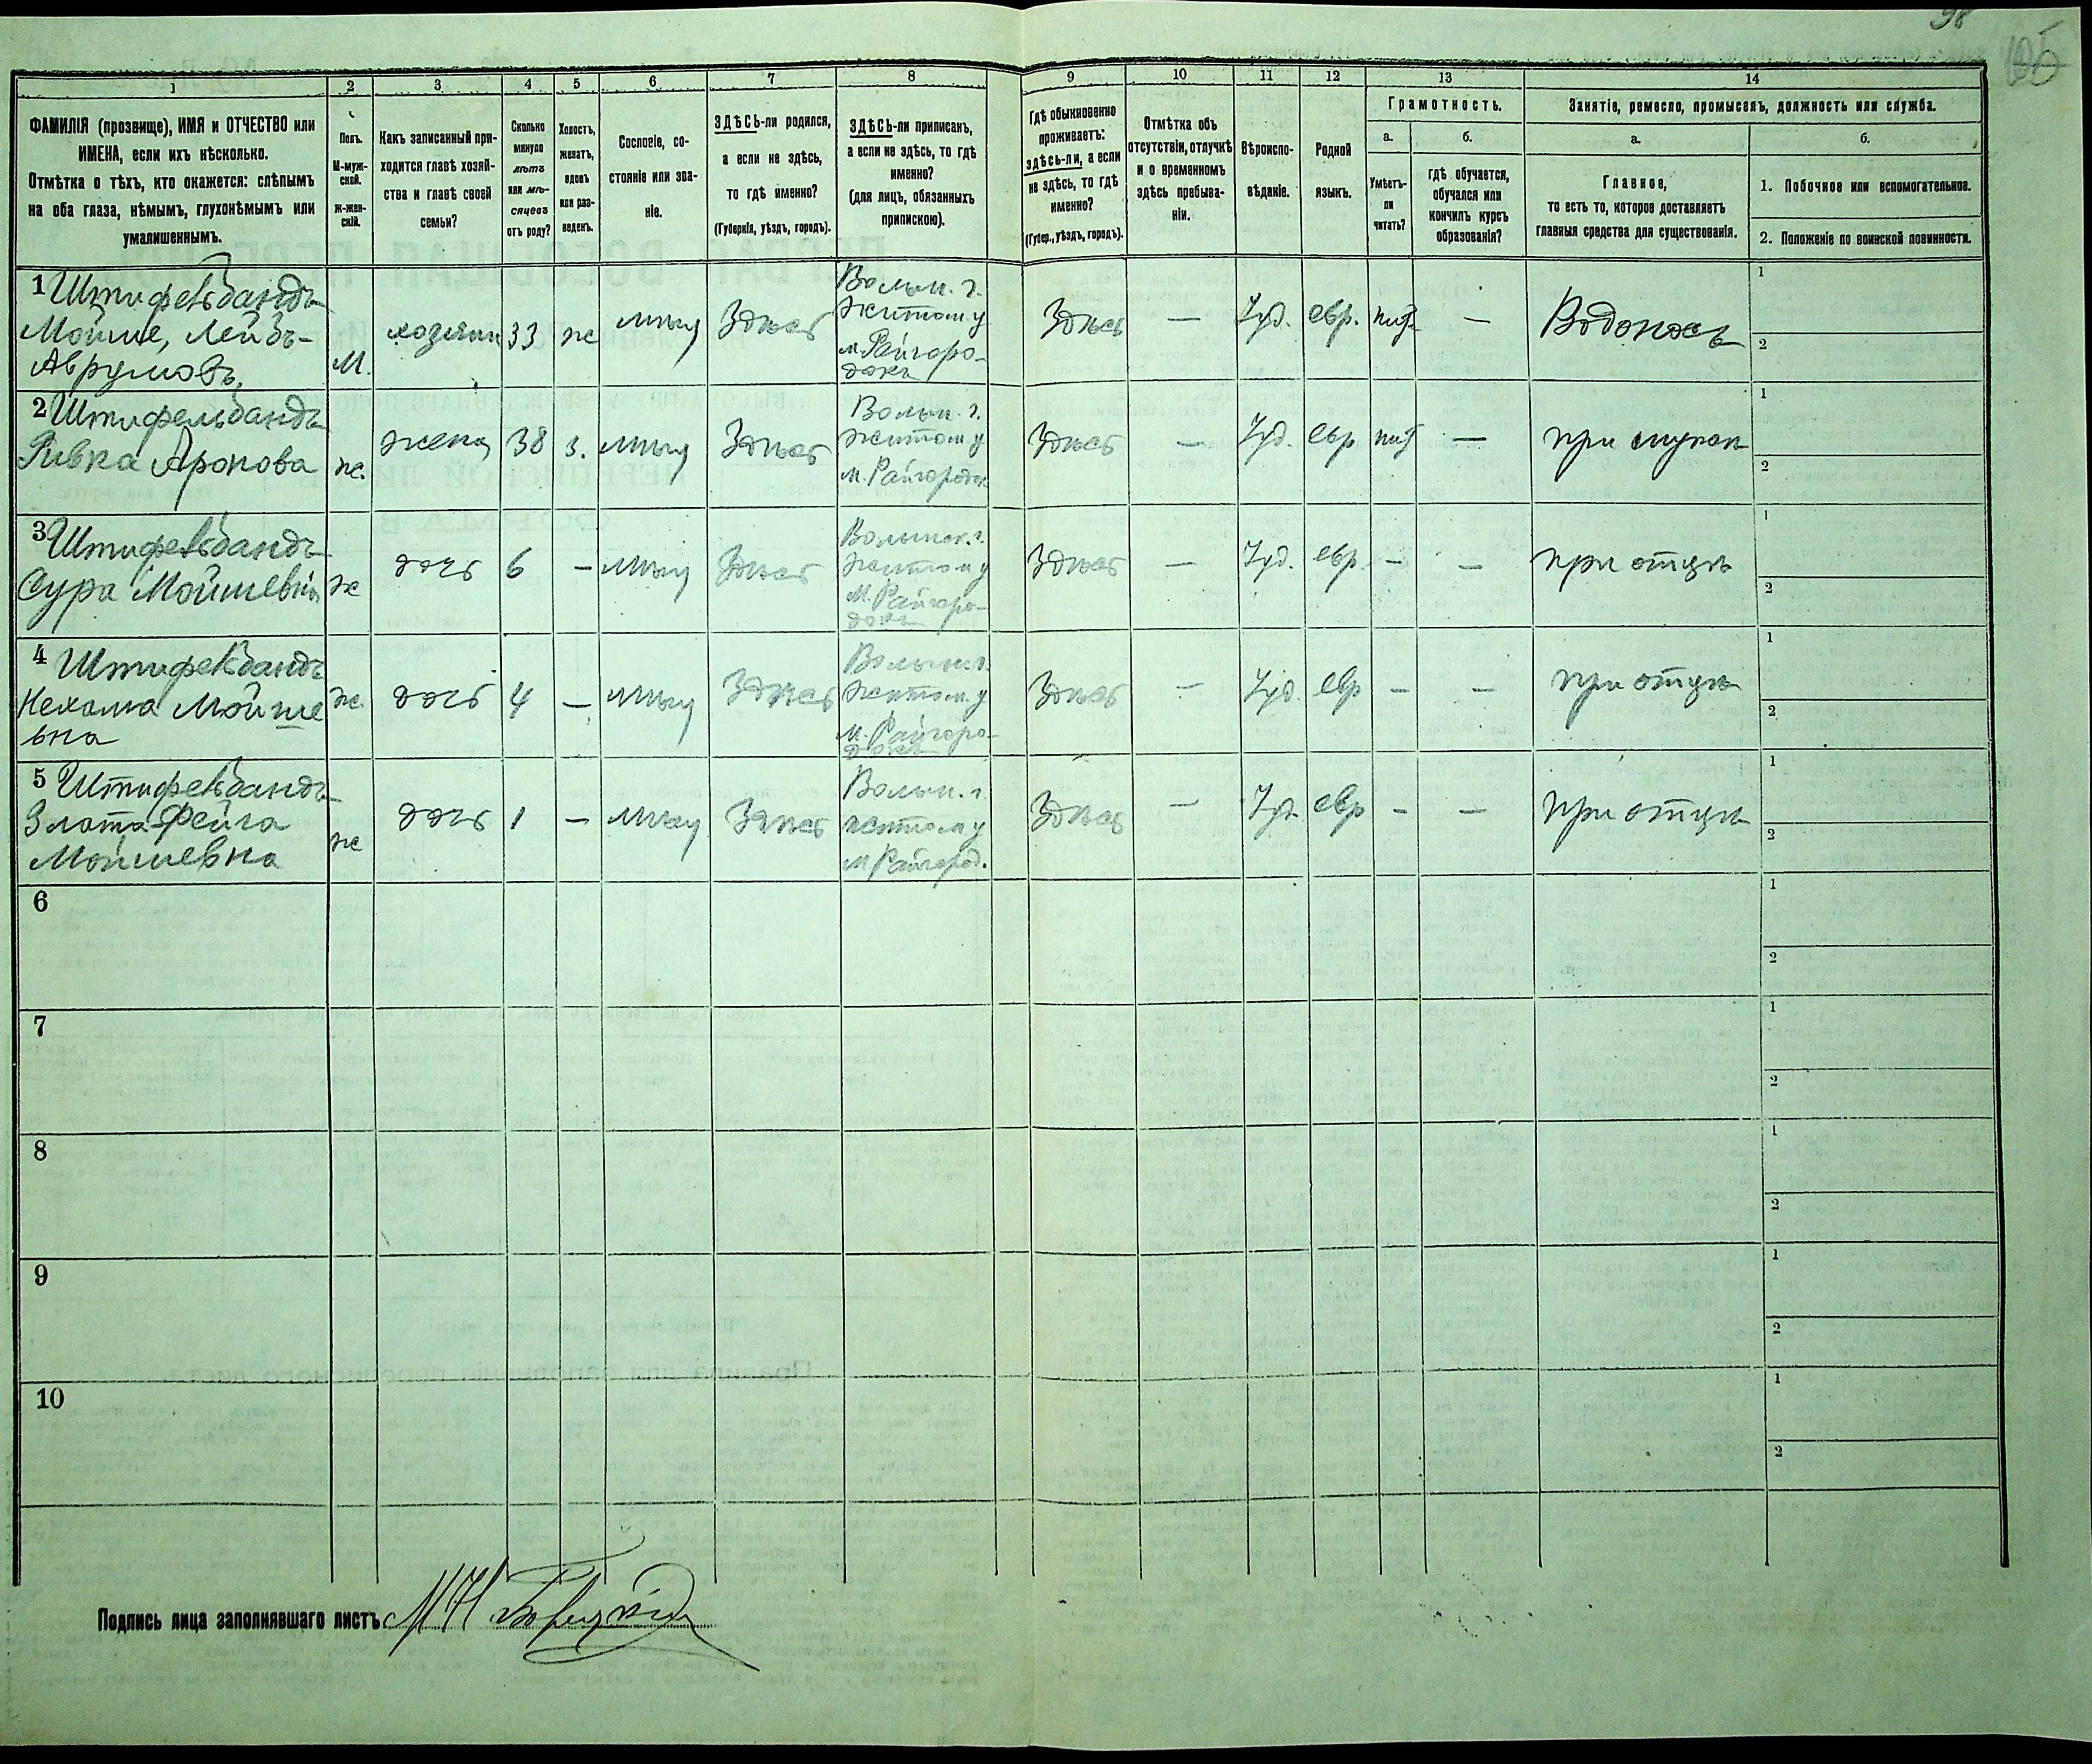 98
105
1 2 3 4 5 6 7 8 9 10 11 12 13 14
ФАМИЛІЯ (прозвище), ИМЯ и ОТЧЕСТВО или
ИМЕНА, если ихъ нѣсколько.
Отмѣтка о тѣхъ, кто окажется: слѣпымъ
на оба глаза, нѣмымъ, глухонѣмымъ или
умалишеннымъ.
Полъ.
М-муж-
ской.
ж-жен-
скій.
Какъ записанный при-
ходится главѣ хозяй-
ства и главѣ своей
семьи?
Сколько
минуло
лѣтъ
или мѣ-
сяцевъ
отъ роду?
Холостъ,
женатъ,
вдовъ
или раз-
веденъ.
Сословіе, со-
стояніе или зва-
ніе.
ЗДѢСЬ-ли родился,
а если не здѣсь,
то гдѣ именно?
(Губернія, уѣздъ, городъ).
ЗДѢСЬ-ли приписанъ,
а если не здѣсь, то гдѣ
именно?
(для лицъ, обязанныхъ
припискою).
Гдѣ обыкновенно
проживаетъ:
здѣсь-ли, а если
не здѣсь, то гдѣ
именно?
(Губер., уѣздъ, городъ).
Отмѣтка объ
отсутствіи, отлучкѣ
и о временномъ
здѣсь пребыва-
ніи.
Вѣроиспо-
вѣданіе.
Родной
языкъ.
Грамотность.
а.
Умѣетъ-
ли
читать?
б.
гдѣ обучается,
обучался или
кончилъ курсъ
образованія?
Занятіе, ремесло, промыселъ, должность или служба.
а.
Главное,
то есть то, которое доставляетъ
главныя средства для существованія.
б.
1. Побочное или вспомогательное.
2. Положеніе по воинской повинности.
1 Штифельбандъ
Мойше, Лейбъ-
Аврумовъ,
М.
хозяин
33
ж
мѣщ
Здѣсь
Волын. г.
Житом. у
м. Райгоро-
докъ
Здѣсь
—
Іуд.
евр.
—
Водоносъ
1
2
2 Штифельбандъ
Ривка Аронова
ж.
жена
38
з.
мѣщ
Здѣсь
Волын. г.
Житом у
м. Райгородок
Здѣсь
—
Іуд.
евр
—
при
1
2
3 Штифельбандъ
Сура Мойшевна
ж
дочь
6
—
мѣщ
Здѣсь
Волынск. г.
Житом у
М. Райгоро-
докъ
Здѣсь
—
Іуд.
евр.
—
—
при отцѣ
1
2
4 Штифельбандъ
Нехама Мойше
вна
ж.
дочь
4
—
мѣщ
Здѣсь
Волын. г.
Житом. у
М. Райгоро-
докъ
Здѣсь
—
Іуд.
евр
—
—
при отцѣ
1
2
5 Штифельбандъ
Злота-Фейга
Мойшевна
ж
дочь
1
—
мѣщ
Здѣсь
Волын. г.
Житом у
м Райгород.
Здѣсь
—
Іуд.
евр
—
—
при отцѣ
1
2
6
1
2
7
1
2
8
1
2
9
1
2
10
1
2
Подпись лица заполнявшаго листъ